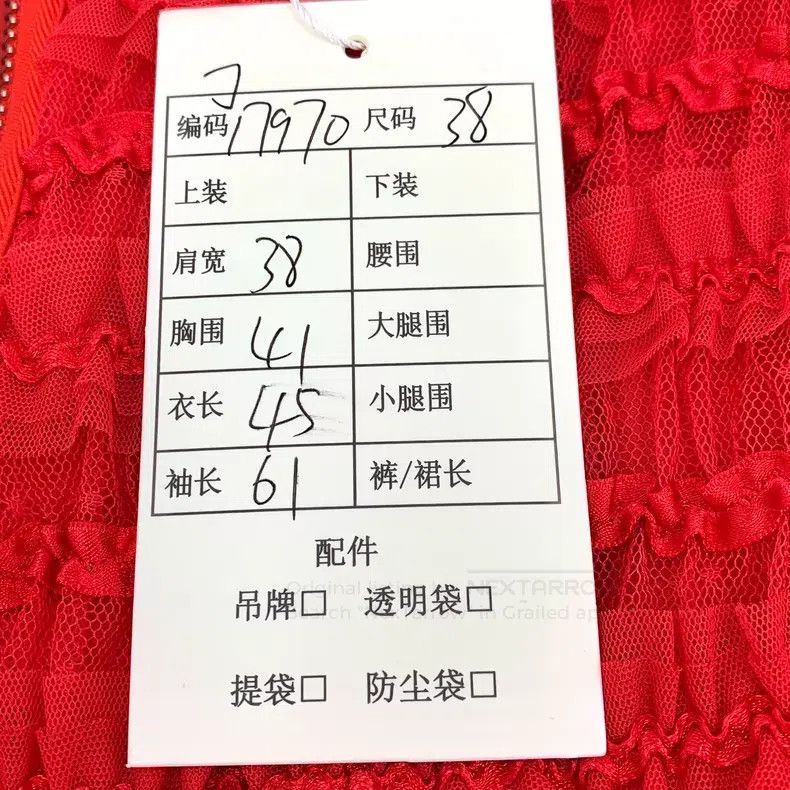 编码 J17970 尺码 38
上装 下装
肩宽 38 腰围
胸围 41 大腿围
衣长 45 小腿围
袖长 61 裤/裙长
配件
Original listing by NEXTARRO
吊牌□ 透明袋□
Search "NextArrow" in Grailed ap
提袋□ 防尘袋□